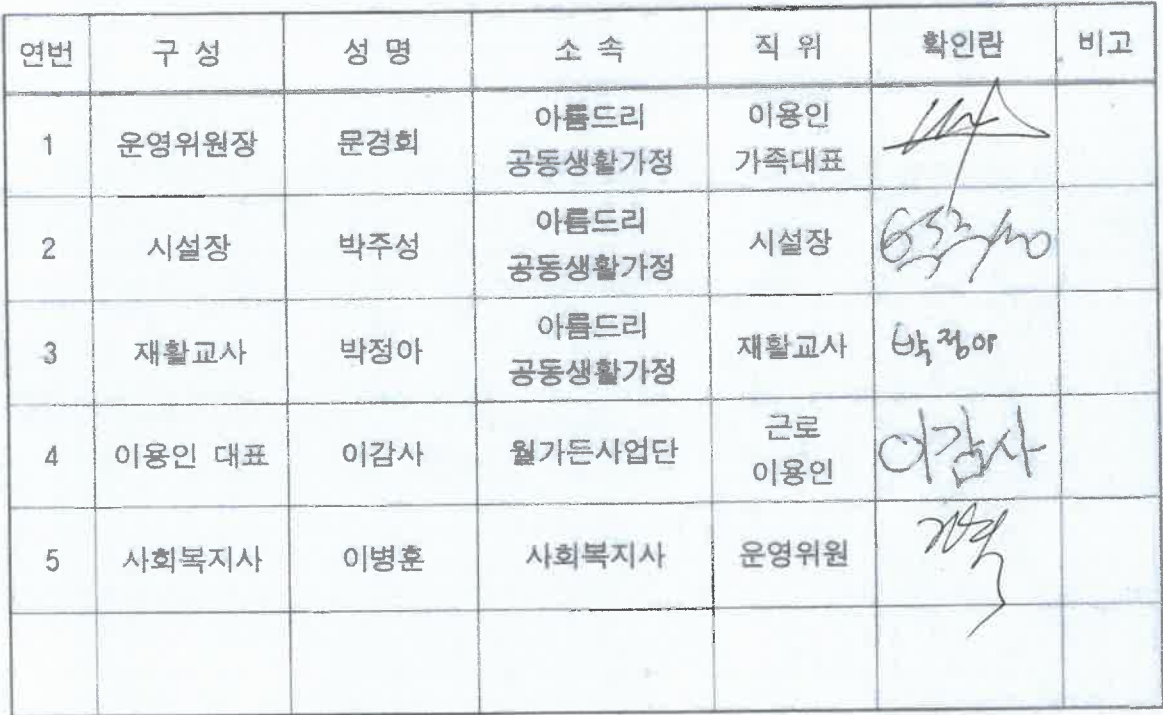 연번 구 성 성 명 소 속 직 위 확인란 비고
1 운영위원장 문경희 아름드리 공동생활가정 이용인 가족대표
2 시설장 박주성 아름드리 공동생활가정 시설장
3 재활교사 박정아 아름드리 공동생활가정 재활교사 박정아
4 이용인 대표 이감사 월가든사업단 근로 이용인 이감사
5 사회복지사 이병훈 사회복지사 운영위원